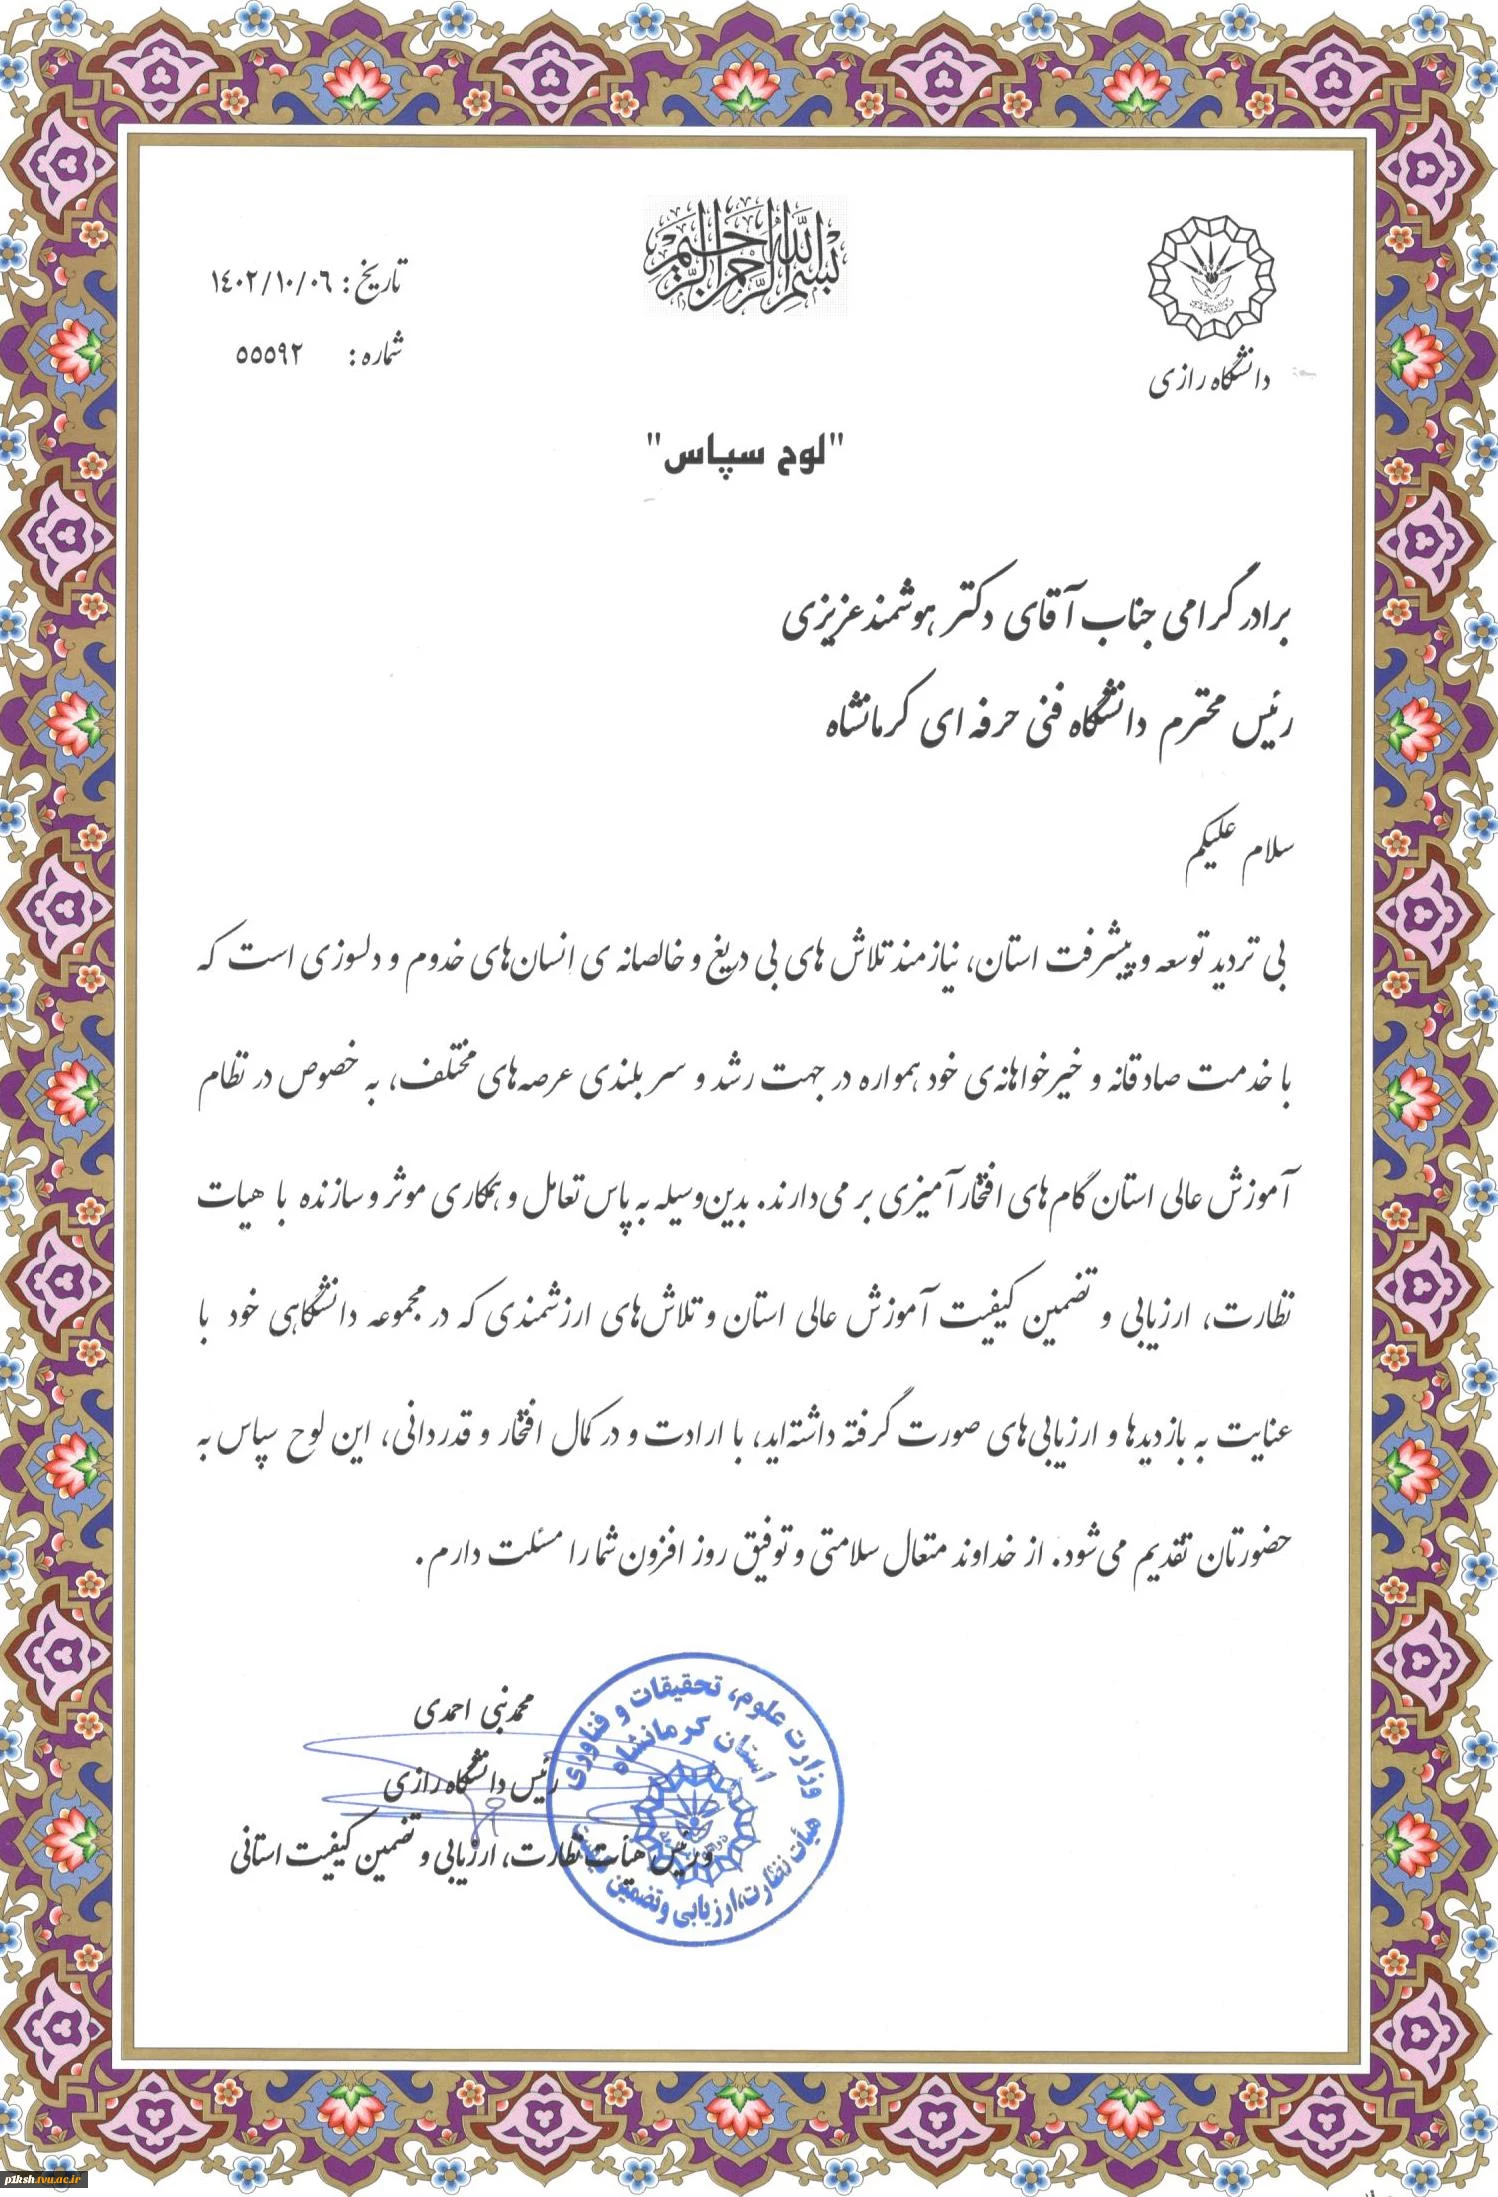 بسم الله الرحمن الرحیم
دانشگاه رازی
تاریخ : ۱۴۰۲/۱۰/۰۶
شماره : ۵۵۵۹۲
"لوح سپاس"
برادر گرامی جناب آقای دکتر هوشمند عزیزی
رئیس محترم دانشگاه فنی حرفه ای کرمانشاه
سلام علیکم
بی تردید توسعه و پیشرفت استان، نیازمند تلاش های بی دریغ و خالصانه ی انسان‌های خدوم و دلسوزی است که
با خدمت صادقانه و خیرخواهانه‌ی خود همواره در جهت رشد و سر بلندی عرصه‌های مختلف، به خصوص در نظام
آموزش عالی استان گام‌های افتخار آمیزی بر می‌دارند. بدین‌وسیله به پاس تعامل و همکاری موثر و سازنده با هیات
نظارت، ارزیابی و تضمین کیفیت آموزش عالی استان و تلاش‌های ارزشمندی که در مجموعه دانشگاهی خود با
عنایت به بازدیدها و ارزیابی‌های صورت گرفته داشته‌اید، با ارادت و در کمال افتخار و قدردانی، این لوح سپاس به
حضورتان تقدیم می‌شود. از خداوند متعال سلامتی و توفیق روز افزون شما را مسئلت دارم.
محمدنبی احمدی
رئیس دانشگاه رازی
و رئیس هیأت نظارت، ارزیابی و تضمین کیفیت استانی
وزارت علوم، تحقیقات و فناوری
استان کرمانشاه
هیأت نظارت، ارزیابی و تضمین
p1ksh.tvu.ac.ir